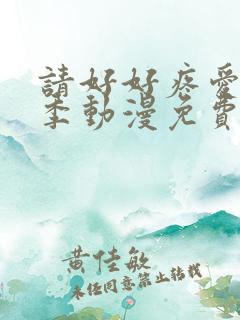 請好好疼愛
季動漫免費
黄佳敏
未经同意禁止转载